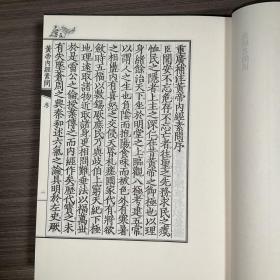 重廣補注黃帝內經素問序
臣聞安不忘危存不忘亡者往聖之先務求民之瘼
恤民之隱者上主之深仁在昔黃帝之御極也以理
身緒餘治天下坐於明堂之上臨觀八極考建五常
以謂人之生也負陰而抱陽食味而被色外有寒暑
之相盪內有喜怒之交侵夭昏札瘥國家代有將欲
斂時五福以敷錫厥庶民乃與岐伯上窮天紀下極
地理遠取諸物近取諸身更相問難垂法以福萬世
於是雷公之倫授業傳之而內經作矣歷代寶之未
有失墜蒼周之興秦和述六氣之論具明於左史厥
黃帝內經素問 序